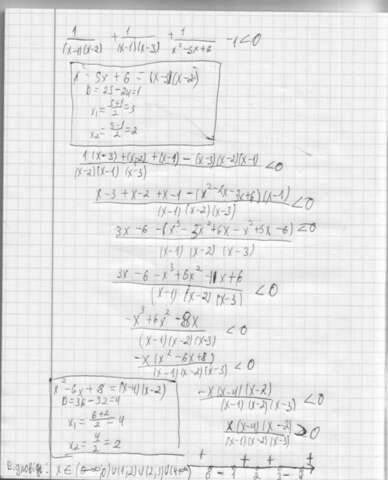 1/((x-1)(x-2)) + 1/((x-1)(x-3)) + 1/(x²-5x+6) - 1 < 0
x² - 5x + 6 = (x-3)(x-2)
D = 25-24 = 1
x₁ = (5+1)/2 = 3
x₂ = (5-1)/2 = 2
(1(x-3)+(x-2)+(x-1) - (x-3)(x-2)(x-1))/((x-2)(x-1)(x-3)) < 0
(x-3+x-2+x-1-(x²-2x-3x+6)(x-1))/((x-1)(x-2)(x-3)) < 0
(3x-6-(x³-5x²+6x-x²+5x-6))/((x-1)(x-2)(x-3)) < 0
(3x-6-x³+6x²-11x+6)/((x-1)(x-2)(x-3)) < 0
(-x³+6x²-8x)/((x-1)(x-2)(x-3)) < 0
(-x(x²-6x+8))/((x-1)(x-2)(x-3)) < 0
x²-6x+8 = (x-4)(x-2)
D = 36-32 = 4
x₁ = (6+2)/2 = 4
x₂ = 4/2 = 2
(-x(x-4)(x-2))/((x-1)(x-2)(x-3)) < 0
(x(x-4)(x-2))/((x-1)(x-2)(x-3)) > 0